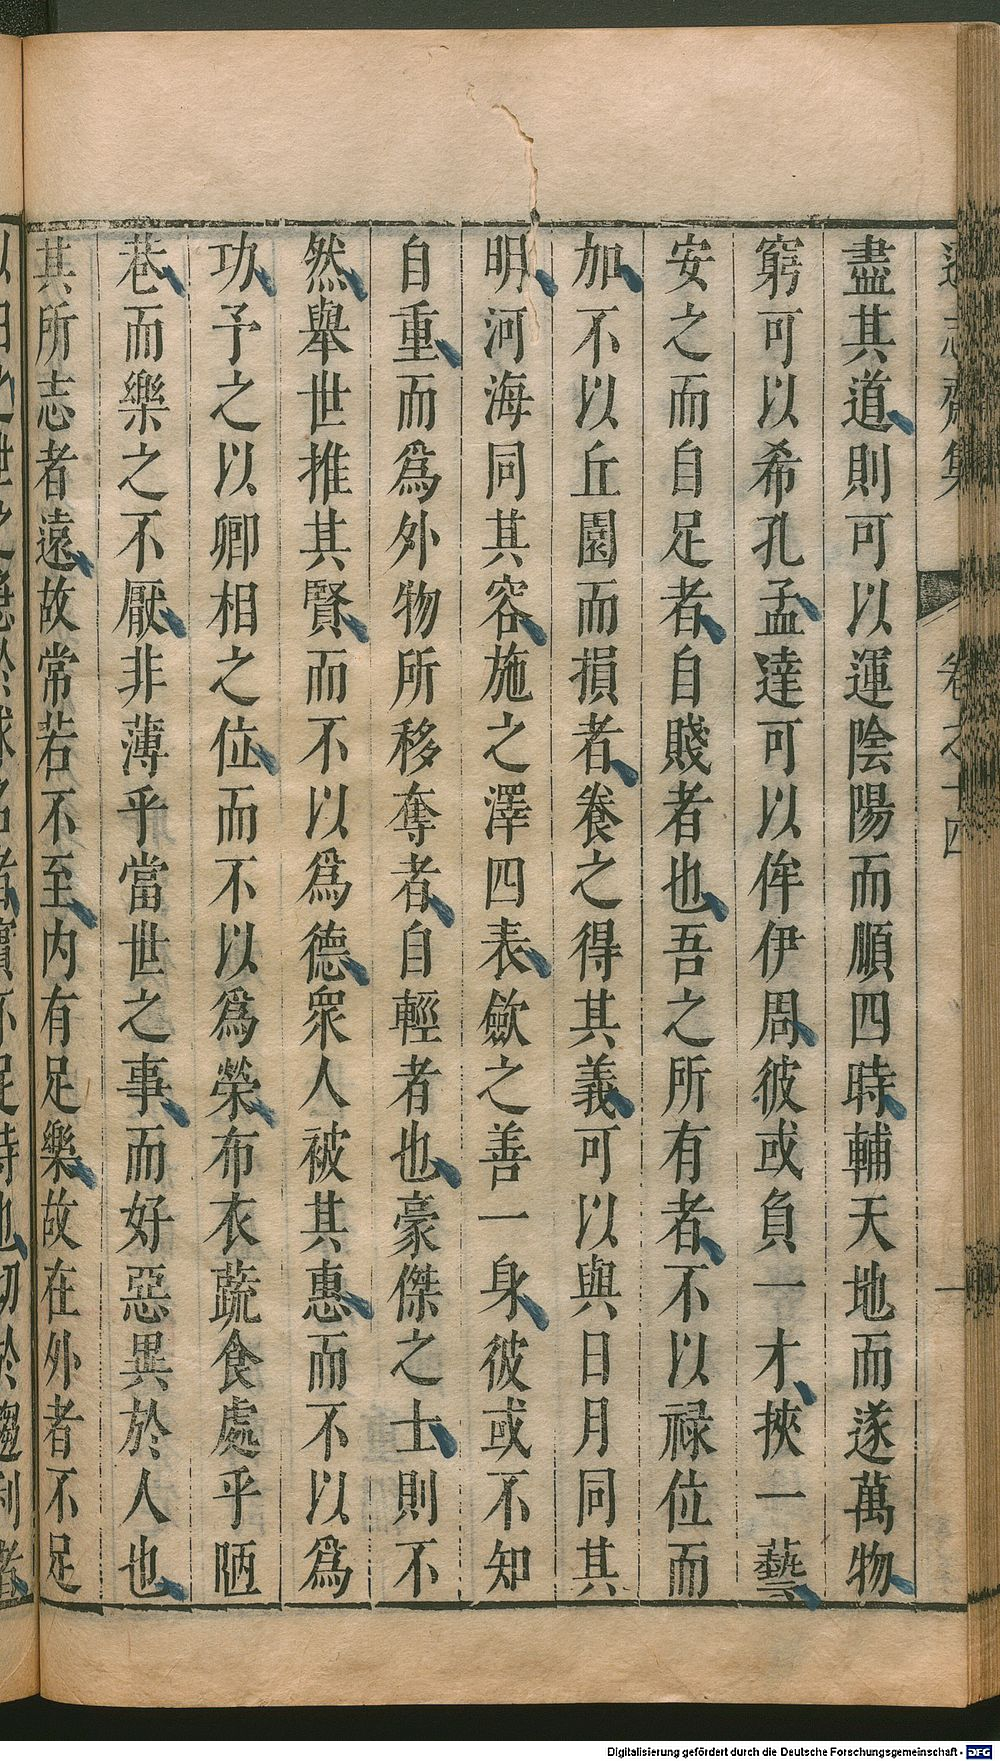 遜志齋集 卷之十四 一
盡其道則可以運陰陽而順四時輔天地而遂萬物
窮可以希孔孟達可以侔伊周彼或負一才挾一藝
安之而自足者自賤者也吾之所有者不以祿位而
加不以丘園而損者養之得其義可以與日月同其
明河海同其容施之澤四表歛之善一身彼或不知
自重而爲外物所移奪者自輕者也豪傑之士則不
然舉世推其賢而不以爲德衆人被其惠而不以爲
功予之以卿相之位而不以爲榮布衣蔬食處乎陋
巷而樂之不厭非薄乎當世之事而好惡異於人也
其所志者遠故常若不至內有足樂故在外者不足
Digitalisierung gefördert durch die Deutsche Forschungsgemeinschaft - DFG